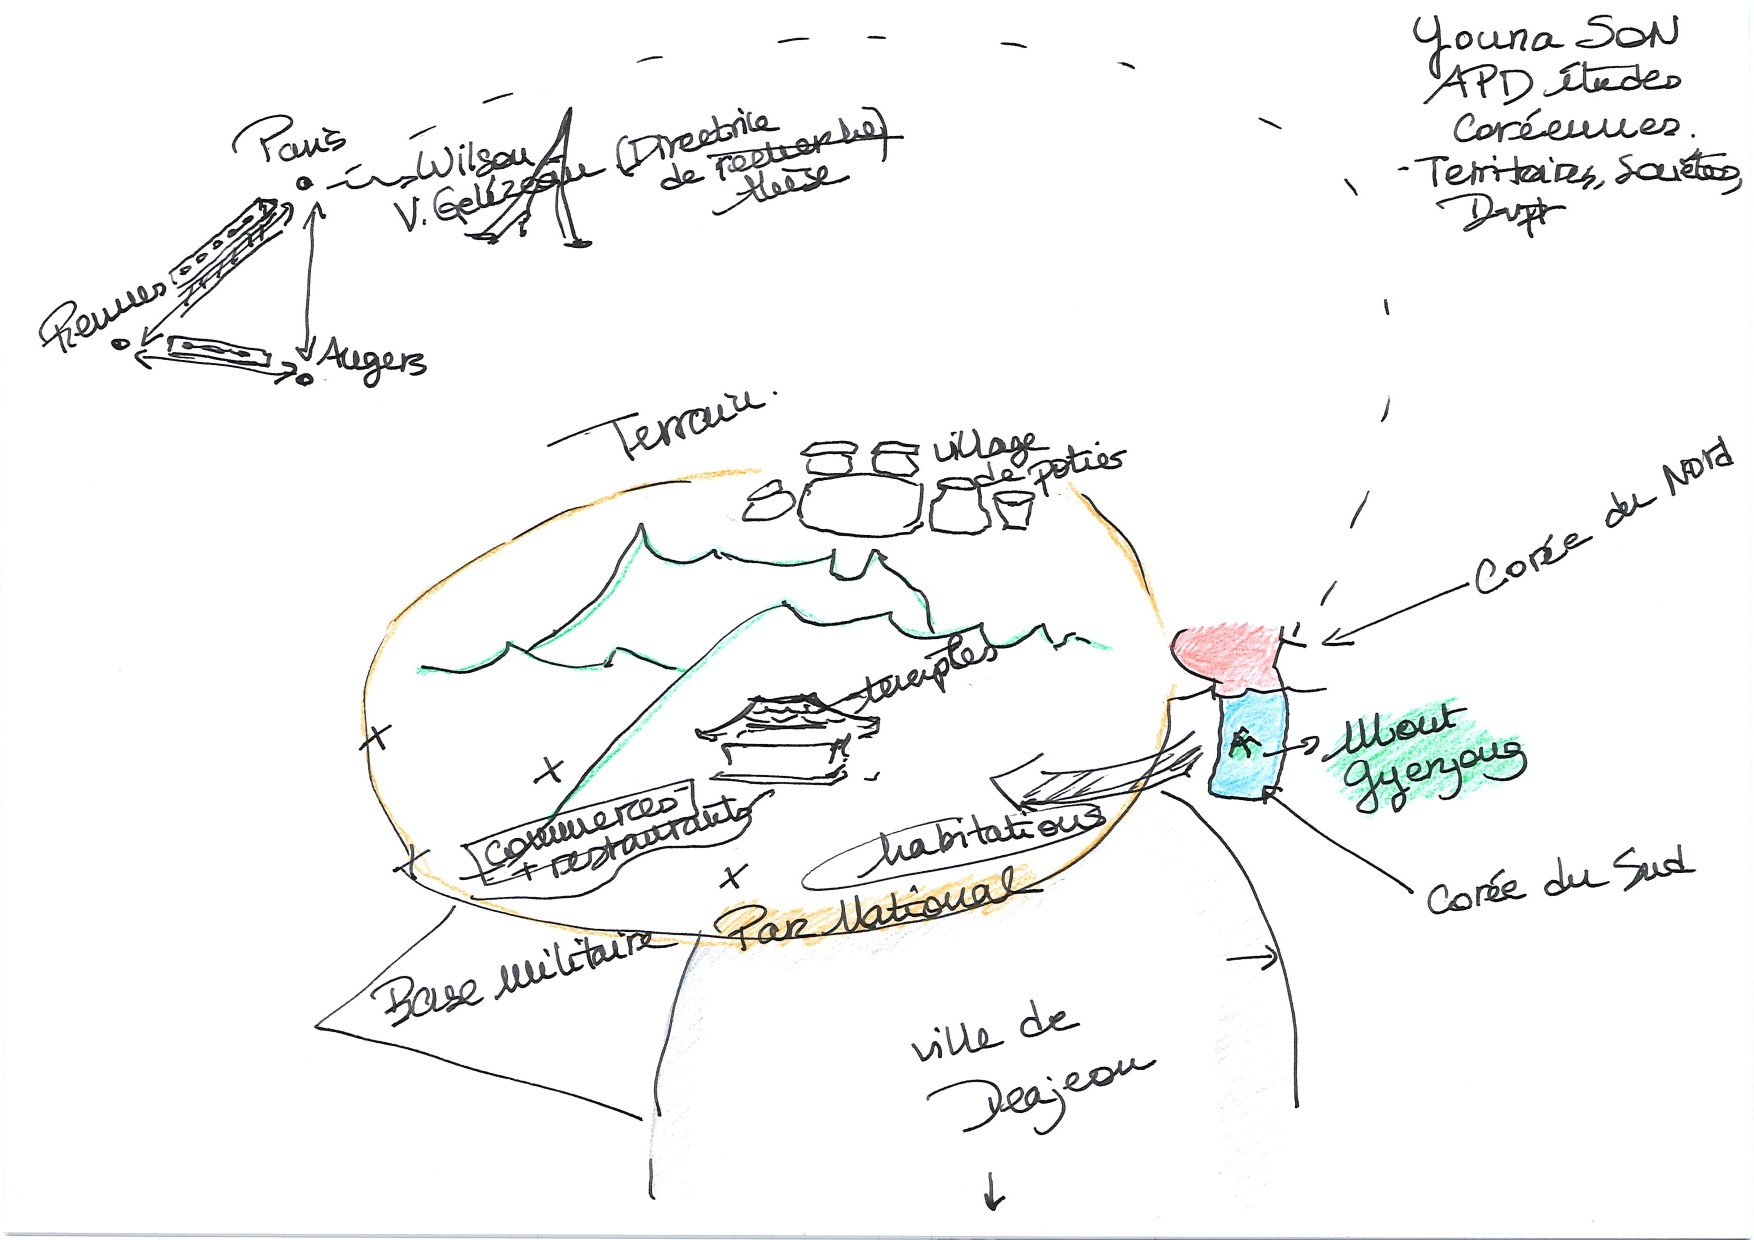 Youna SON
APD études
Coréennes.
- Territoires, Sociétés,
Dvpt
Paris
Wilson
V. Gelézeau (Directrice
de recherche)
thèse
Rennes
Angers
Terrain.
village
de potiers
Corée du Nord
temples
Mont
Gyeryong
commerces
+ restaurants
habitations
Corée du Sud
Parc National
Base militaire
ville de
Deajeon